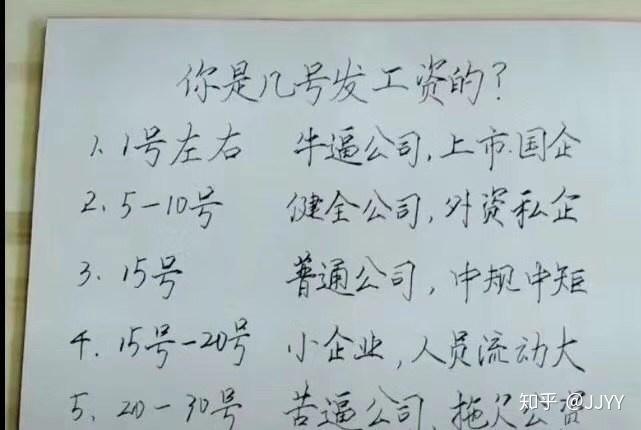 你是几号发工资的？
1、1号左右 牛逼公司，上市.国企
2、5-10号 健全公司，外资私企
3、15号 普通公司，中规中矩
4、15号-20号 小企业，人员流动大
5、20-30号 苦逼公司，拖欠公资
知乎 @JJYY